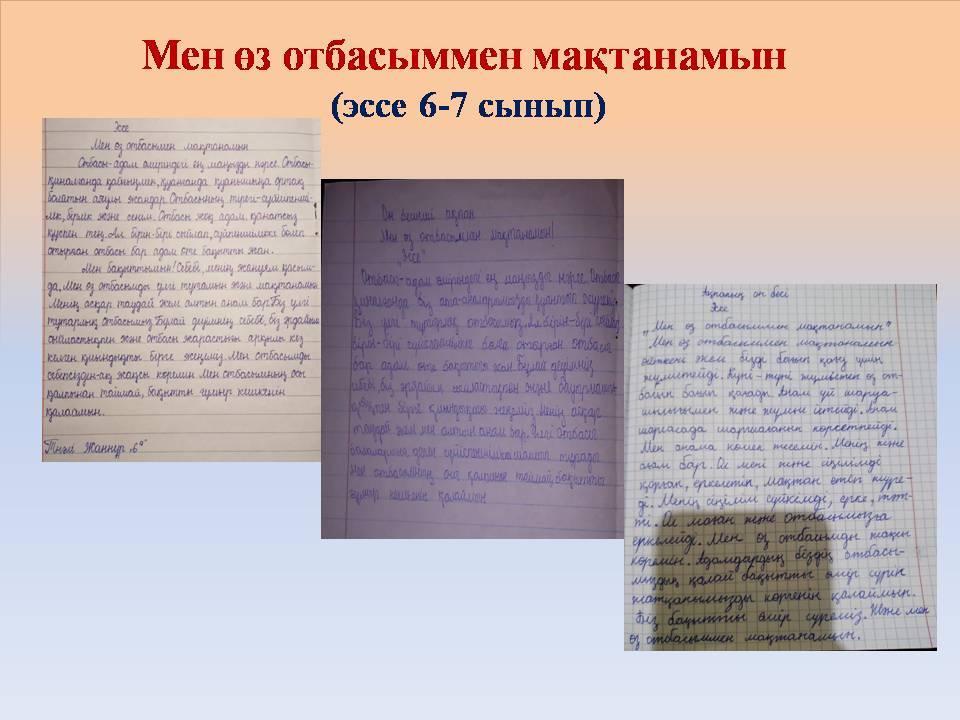 Мен өз отбасыммен мақтанамын
(эссе 6-7 сынып)
Эссе
Мен өз отбасымен мақтанамын
Отбасы-адам өміріндегі ең маңызды нәрсе. Отбасы-
қиналғанда қабыңмен, қуанғанда қуанышыңа ортақ
болатын аяулы жандар. Отбасының тірегі-сүйіспенші-
лік, бірлік және сенім. Отбасы жоқ адам, қанатсыз
құспен тең. Ал бірін-бірі сыйлап, сүйіспеншілікке бөлеп
отырған отбасы бар адам өте бақытты жан.
Мен бақыттымын! Себебі, менің жанұям қасым-
да, Мен өз отбасымды үлгі тұтамын және мақтанамын.
Менің асқар таудай әкем алтын анам бар. Біз үлгі
тұтарлық отбасымыз. Бұлай деуімнің себебі, біз әрдайым
сыйластықпен және отбасы жарастығы арқылы кез
келген қиындықты бірге жеңеміз. Мен отбасымды
себепсізден-ақ жақсы көремін. Мен отбасымның осы
қалпынан таймай, бақытты ғұмыр кешкенін
қалаймын.
Жаннур 6
Он бесінші ақпан
Мен өз отбасыммен мақтанамын!
"Эссе"
Отбасы-адам өміріндегі ең маңызды нәрсе. Отбасы
Біз үлгі тұтарлық отбасымыз. Ал бірін-бірі сыйлап
бірін-бірі сүйіспеншілікке бөлеп отырған отбасы
бар адам өте бақытты жан. Бұлай деуімнің
себебі, біз әрдайым
бірге қиындықты жеңеміз. Менің асқар
таудай әкем мен алтын анам бар.
отбасымның осы қалпынан таймай, бақытты
ғұмыр кешкенін қалаймын
Ақпаның он бесі
Эссе
"Мен өз отбасыммен мақтанамын"
Мен өз отбасыммен мақтанамын
өйткені әкем бізді бағып қағу үшін
жұмыстейді. Күні-түні жұмыстеп өз от-
басын бағып қағады. Анам үй шаруа-
шылығымен және жұмыс істейді. Анам
шаршасада шаршағанын көрсетпейді.
Мен анама көмек тесемін. Менің және
ағам бар. Ол мені және сіңілімді
қорғап, еркелетіп, мақтан етіп жүре-
ді. Менің сіңілім сүйкемді, ерке, тәт-
ті. Ол маған және отбасымызға
еркелейді. Мен өз отбасымды жақсы
көремін. Адамдардың біздің отбасы-
мыздың қалай бақытты өмір сүріп
жатқанымызды көргенін қалаймын.
Біз бақытты өмір сүреміз. Және мен
өз отбасыммен мақтанамын.